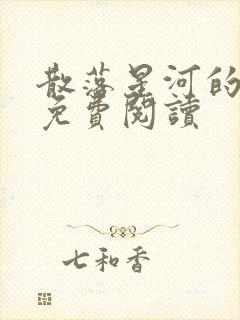 散落星河的
免費閱讀
七和香